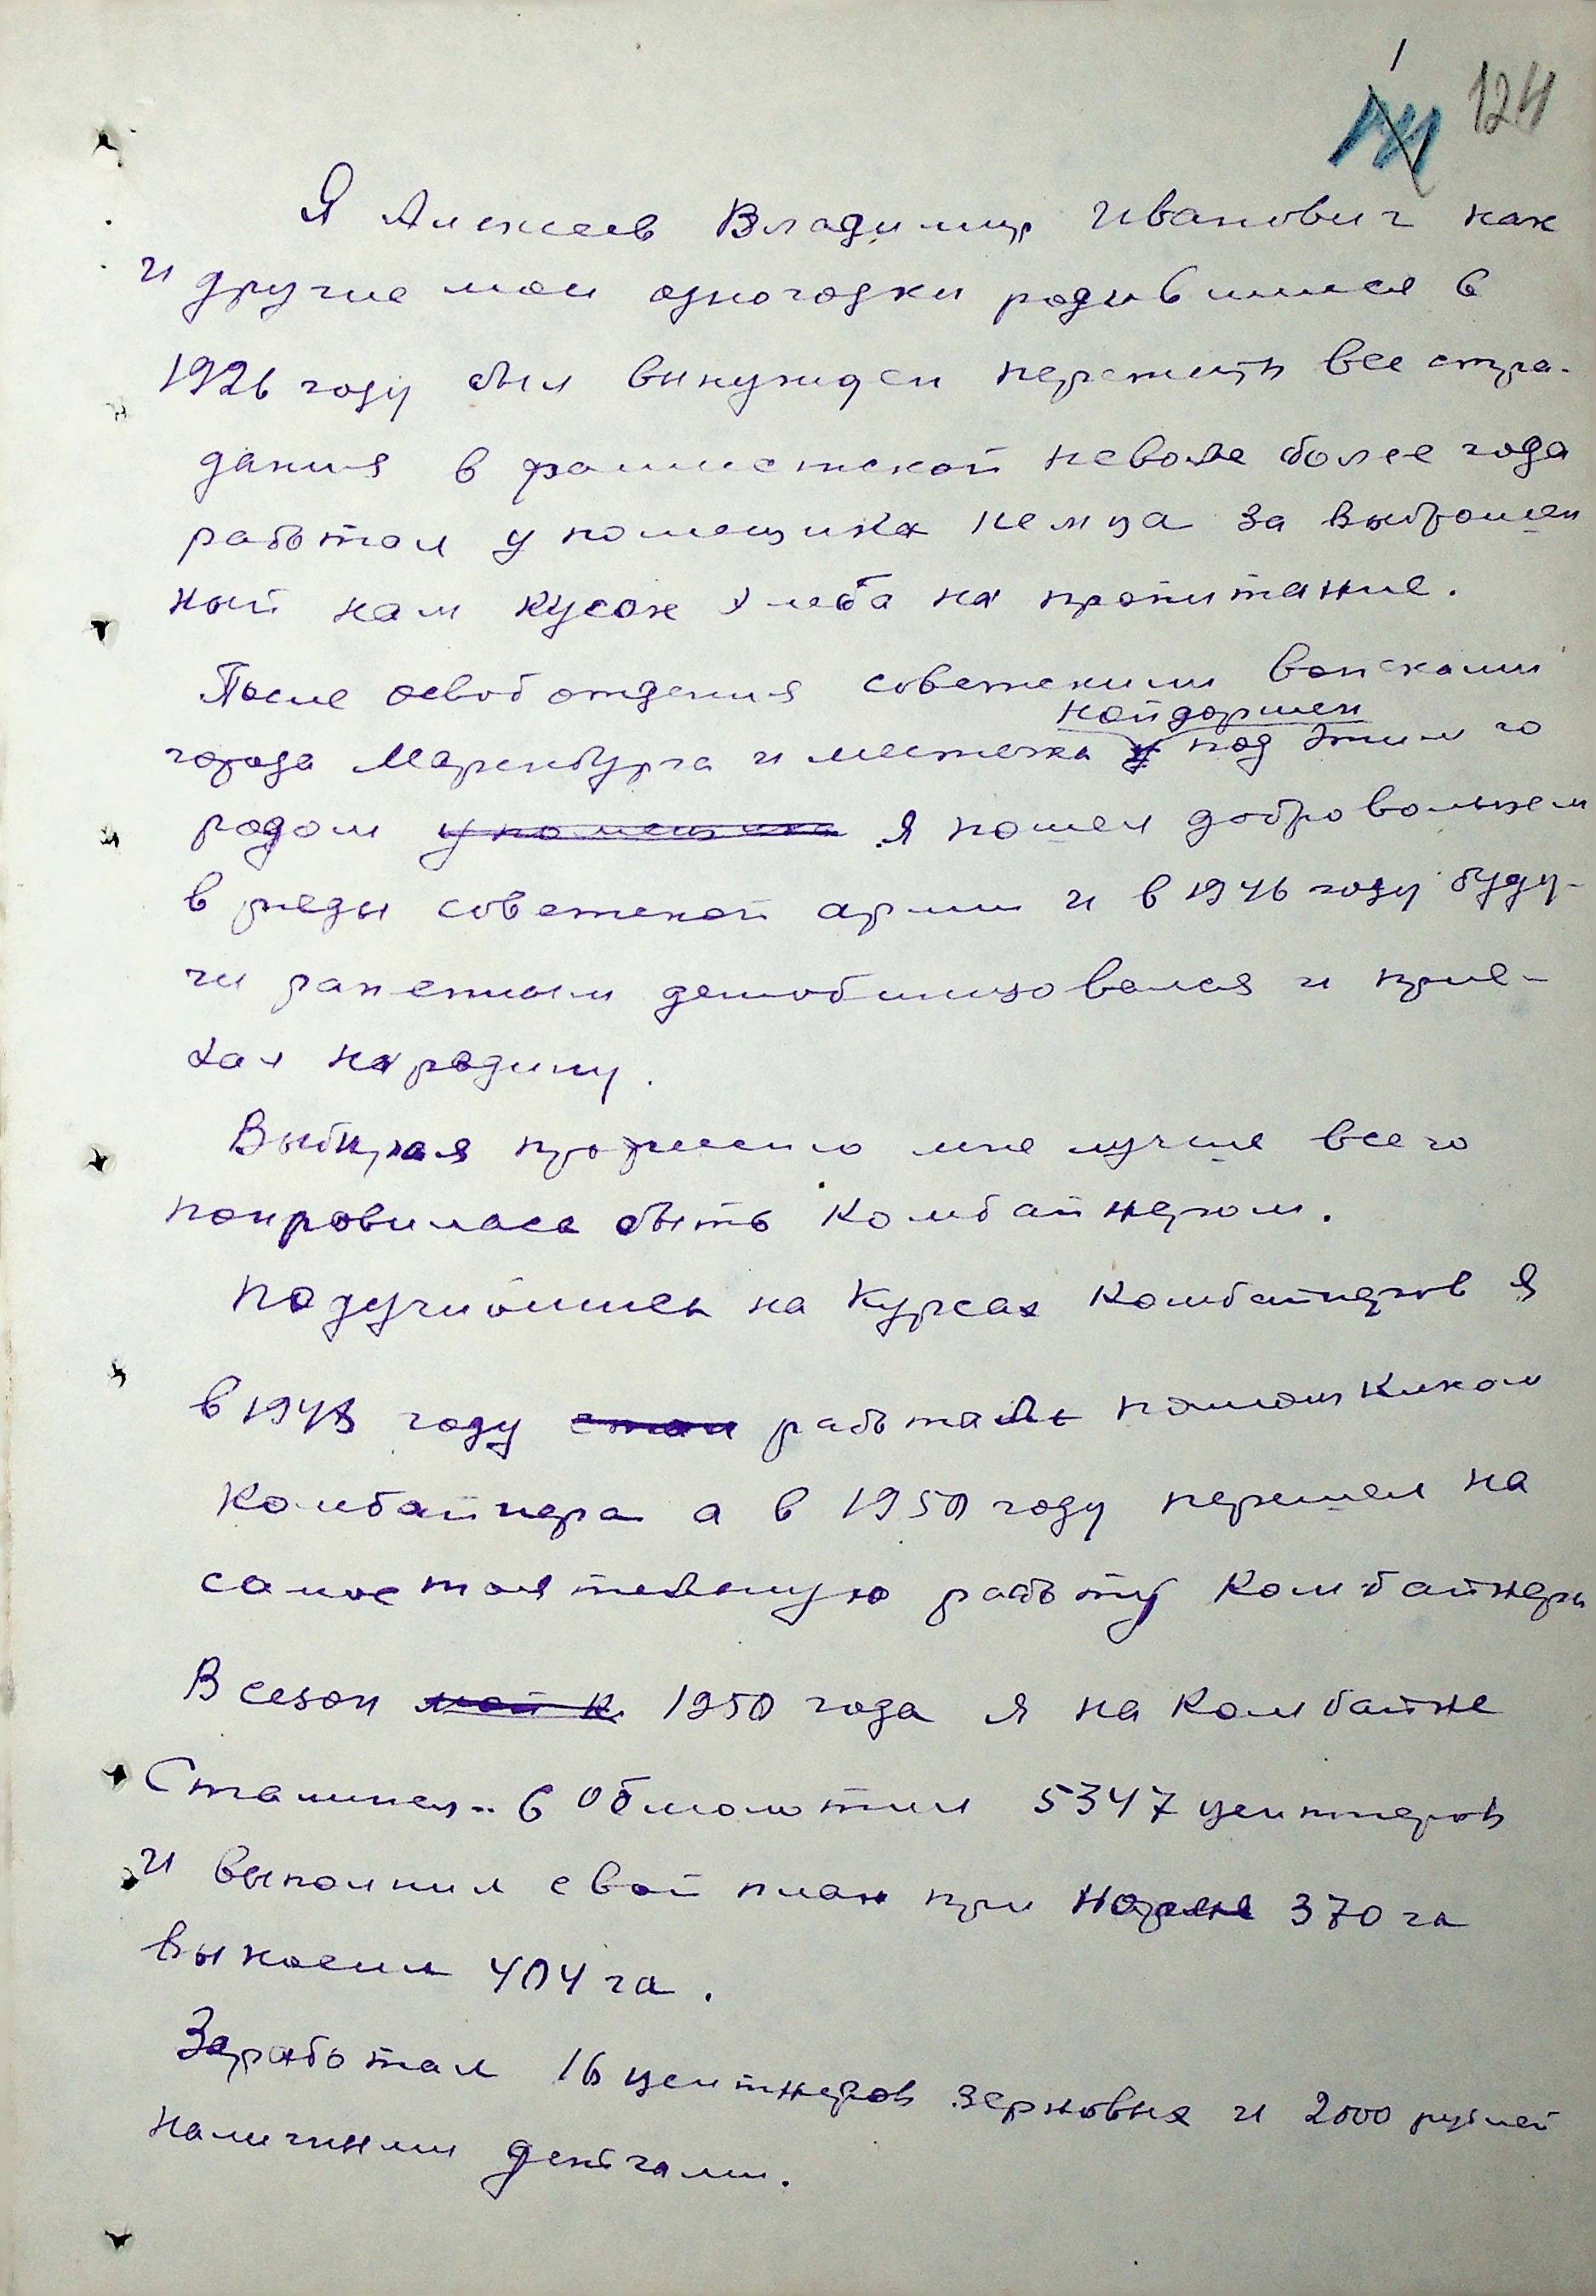 1
124
Я Алексеев Владимир Иванович как
и другие мои одногодки родившиеся в
1926 году был вынужден пережить все стра-
дания в фашистской неволе более года
работал у помещика немца за выброшен
ный нам кусок хлеба на пропитание.
После освобождения советскими войсками
найдоршен
города Маренбурга и местечка под этим го
родом у помещика я пошел добровольцем
в ряды советской армии и в 1946 году буду-
чи раненным демобилизовался и прие-
хал на родину.
Выбирая профессию мне лучше всего
понравилась быть комбайнером.
Подучившись на курсах комбайнеров я
в 1948 году стал работать помошником
комбайнера а в 1950 году перешел на
самостоятельную работу комбайнера
В сезон мой к 1950 года я на комбайне
Сталинец-6 обмолотил 5347 центнеров
и выполнил свой план при норме 370 га
выкосил 404 га.
Заработал 16 центнеров зерновых и 2000 рублей
наличными деньгами.